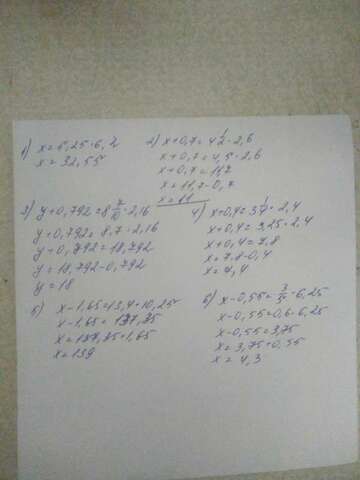 1) x = 5,25 · 6,2
x = 32,55
2) x + 0,7 = 4 1/2 · 2,6
x + 0,7 = 4,5 · 2,6
x + 0,7 = 11,7
x = 11,7 - 0,7
x = 11
3) y + 0,792 = 8 7/10 · 2,16
y + 0,792 = 8,7 · 2,16
y + 0,792 = 18,792
y = 18,792 - 0,792
y = 18
4) x + 0,4 = 3 1/4 · 2,4
x + 0,4 = 3,25 · 2,4
x + 0,4 = 7,8
x = 7,8 - 0,4
x = 7,4
5) x - 1,65 = 13,4 · 10,25
x - 1,65 = 137,35
x = 137,35 + 1,65
x = 139
6) x - 0,55 = 3/5 · 6,25
x - 0,55 = 0,6 · 6,25
x - 0,55 = 3,75
x = 3,75 + 0,55
x = 4,3